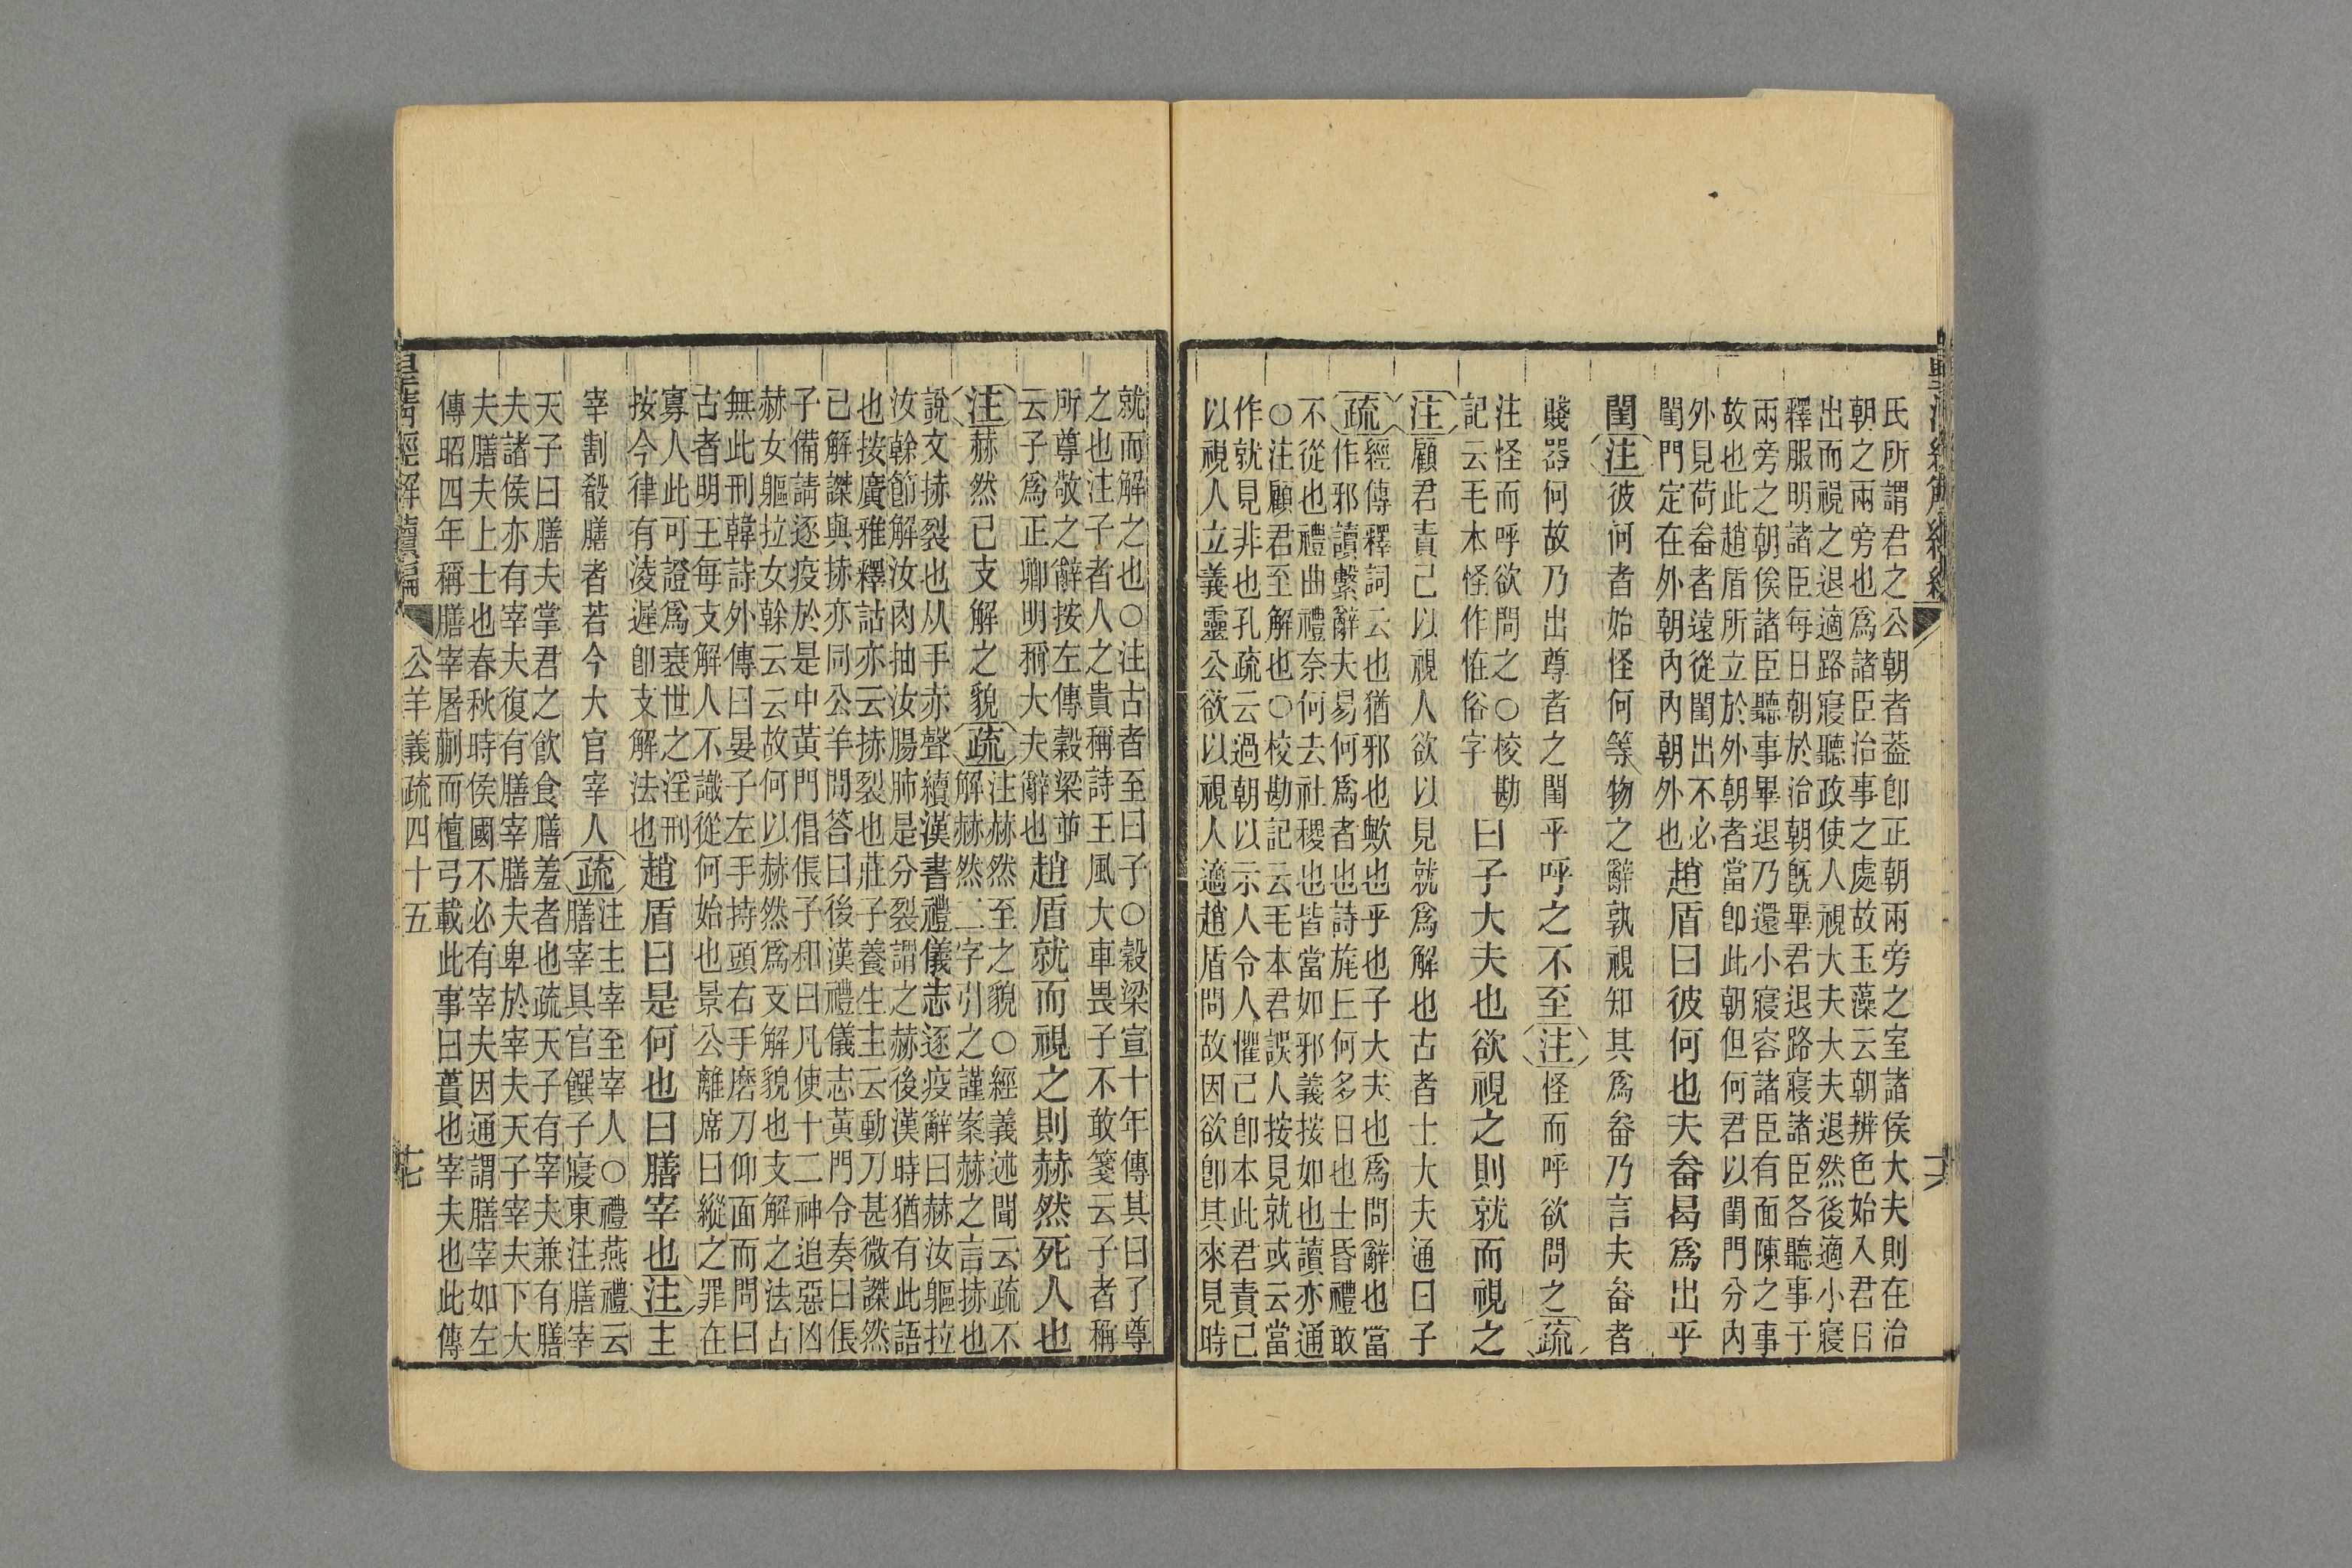 氏所謂君之公朝者葢卽正朝兩旁之室諸侯大夫則在治
朝之兩旁也爲諸臣治事之處故玉藻云朝辨色始入君日
出而視之退適路寢聽政使人視大夫大夫退然後適小寢
釋服明諸臣每日朝於治朝旣畢君退路寢諸臣各聽事于
兩旁之朝俟諸臣聽事畢退乃還小寢容諸臣有面陳之事
故也此趙盾所立於外朝者當卽此朝但何君以閨門分內
外見荷畚者遠從閨出不必
閨門定在外朝內內朝外也
趙盾曰彼何也夫畚曷爲出乎
閨注彼何者始怪何等物之辭孰視知其爲畚乃言夫畚者
賤器何故乃出尊者之閨乎呼之不至注怪而呼欲問之疏
注怪而呼欲問之○校勘
記云毛本怪作恠俗字
曰子大夫也欲視之則就而視之
注顧君責己以視人欲以見就爲解也古者士大夫通曰子
疏經傳釋詞云也猶邪也歟也乎也子大夫也爲問辭也當
作邪讀繫辭夫易何爲者也詩旄丘何多日也士昏禮敢
不從也禮曲禮奈何去社稷也皆當如邪義按如也讀亦通
○注顧君至解也○校勘記云毛本君誤人按見就或云當
作就見非也孔疏云過朝以示人令人懼己卽本此君責己
以視人立義靈公欲以視人適趙盾問故因欲卽其來見時
就而解之也○注古者至曰子○穀梁宣十年傳其曰子尊
之也注子者人之貴稱詩王風大車畏子不敢箋云子者稱
所尊敬之辭按左傳穀梁並
云子爲正卿明稱大夫辭也
趙盾就而視之則赫然死人也
注赫然已支解之貌疏注赫然至之貌○經義述聞云疏不
解赫然二字引之謹案赫之言捇也
說文捇裂也从手赤聲續漢書禮儀志逐疫辭曰赫汝軀拉
汝幹節解汝肉抽汝腸肺是分裂謂之赫後漢時猶有此語
也按廣雅釋詁亦云捇裂也莊子養生主云動刀甚微謋然
已解謋與捇亦同公羊問答曰後漢禮儀志黃門令奏曰侲
子備請逐疫於是中黃門倡侲子和曰凡使十二神追惡凶
赫女軀拉女幹云云故何以赫然爲支解貌也支解之法古
無此刑韓詩外傳曰晏子左手持頭右手磨刀仰面而問曰
古者明王每支解人不識從何始也景公離席曰縱之罪在
寡人此可證爲衰世之淫刑
按今律有淩遲卽支解法也
趙盾曰是何也曰膳宰也注主
宰割殺膳者若今大官宰人疏注主宰至宰人○禮燕禮云
膳宰具官饌子寢東注膳宰
天子曰膳夫掌君之飮食膳羞者也疏天子有宰夫兼有膳
夫諸侯亦有宰夫復有膳宰膳夫卑於宰夫天子宰夫下大
夫膳夫上士也春秋時侯國不必有宰夫因通謂膳宰如左
傳昭四年稱膳宰屠蒯而檀弓載此事曰蕢也宰夫也此傳
皇清經解續編
公羊義疏四十五
十七